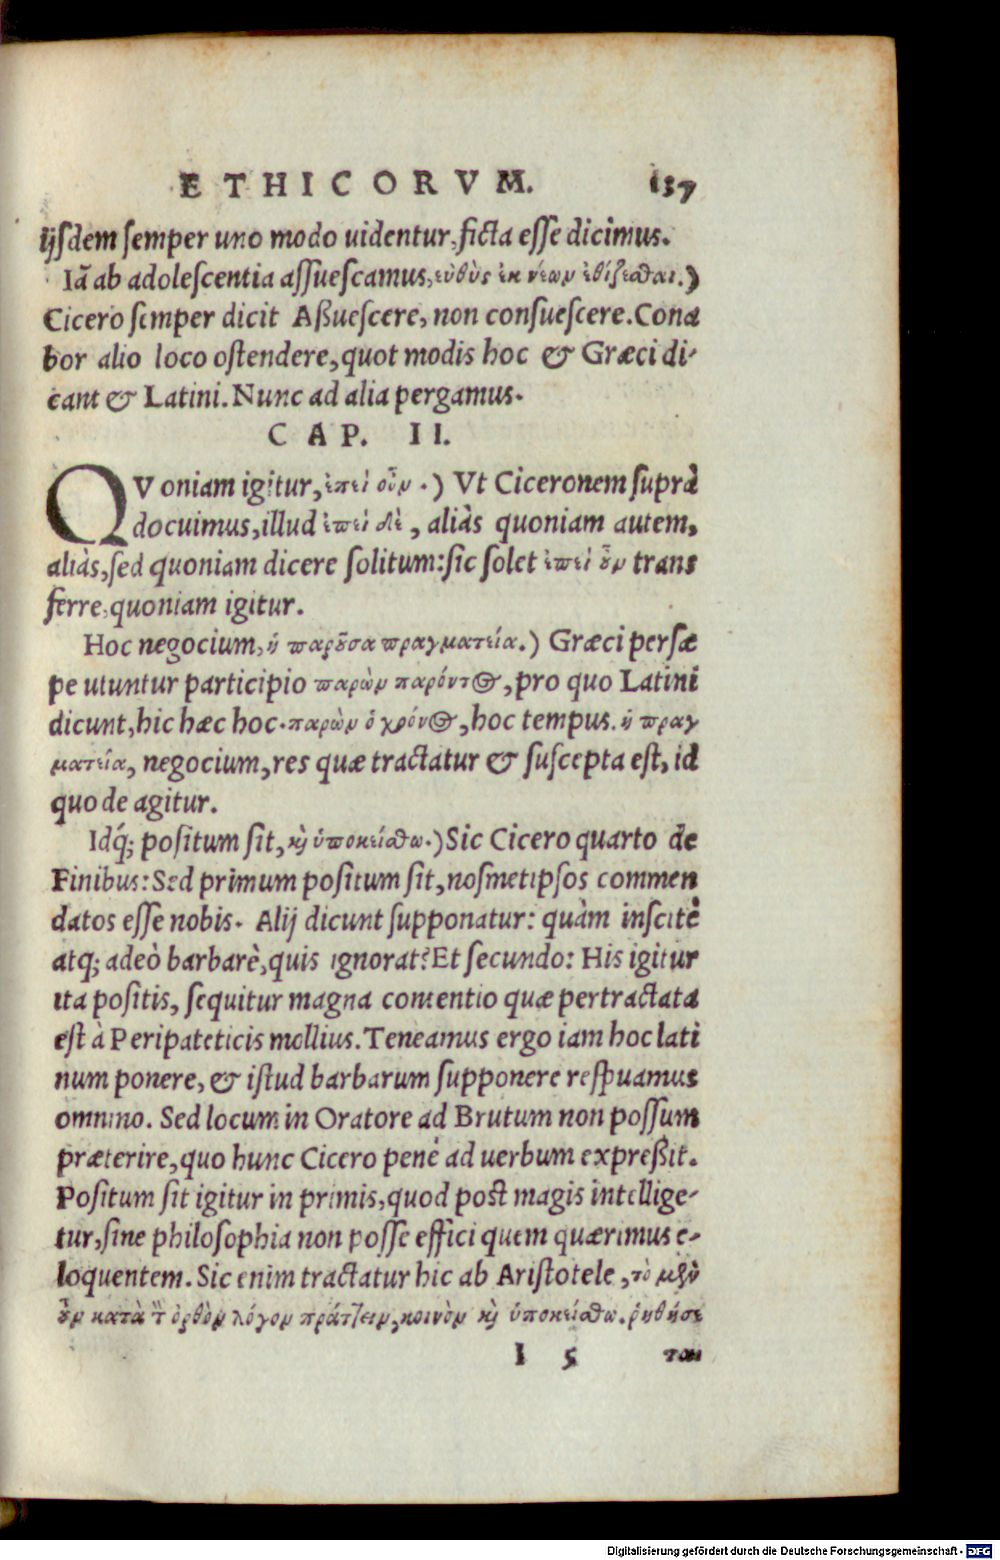 ETHICORVM. 137
ijsdem semper uno modo uidentur, ficta esse dicimus.
Iã ab adolescentia assuescamus, εὐθὺς ἐκ νέων ἐθίζεσθαι.)
Cicero semper dicit Aßuescere, non consuescere. Cona
bor alio loco ostendere, quot modis hoc & Græci di-
cant & Latini. Nunc ad alia pergamus.
CAP. II.
QVoniam igitur, ἐπεὶ οὖν.) Vt Ciceronem suprà
docuimus, illud ἐπεὶ δὲ, aliàs quoniam autem,
aliàs, sed quoniam dicere solitum: sic solet ἐπεὶ οὖν trans
ferre, quoniam igitur.
Hoc negocium, ἡ παροῦσα πραγματεία.) Græci persæ
pe utuntur participio παρὼν παρόντος, pro quo Latini
dicunt, hic hæc hoc. παρὼν ὁ χρόνος, hoc tempus. ἡ πραγ
ματεία, negocium, res quæ tractatur & suscepta est, id
quo de agitur.
Idq́; positum sit, καὶ ὑποκείσθω.) Sic Cicero quarto de
Finibus: Sed primum positum sit, nosmetipsos commen
datos esse nobis. Alij dicunt supponatur: quàm inscitè
atq; adeò barbarè, quis ignorat? Et secundo: His igitur
ita positis, sequitur magna contentio quæ pertractata
est à Peripateticis mollius. Teneamus ergo iam hoc lati
num ponere, & istud barbarum supponere respuamus
omnino. Sed locum in Oratore ad Brutum non possum
præterire, quo hunc Cicero penè ad uerbum expreßit.
Positum sit igitur in primis, quod post magis intellige-
tur, sine philosophia non posse effici quem quærimus e-
loquentem. Sic enim tractatur hic ab Aristotele, τὸ μὲν
οὖν κατὰ τὸν ὀρθὸν λόγον πράττειν, κοινὸν καὶ ὑποκείσθω. ῥηθήσε
I 5 ται